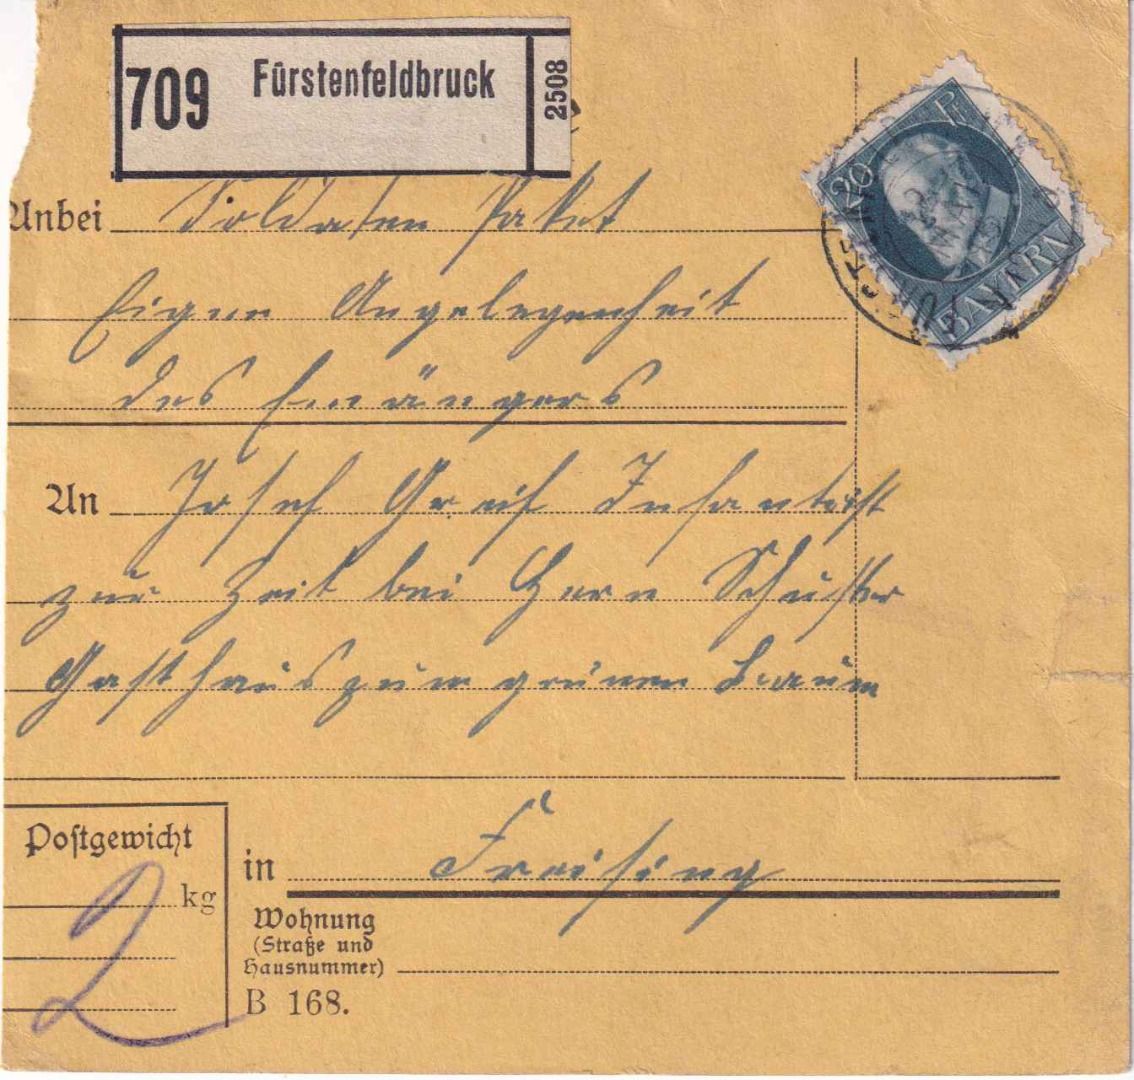 709 Fürstenfeldbruck 2508
20 Pf
BAYERN
Anbei Soldaten Paket
Eigene Angelegenheit
des Emängers
An Josef Greif Infantrist
zur Zeit bei Herrn Schuster
Gasthaus zum grünen Baum
Postgewicht
2 kg
in Freising
Wohnung
(Straße und
Hausnummer)
B 168.